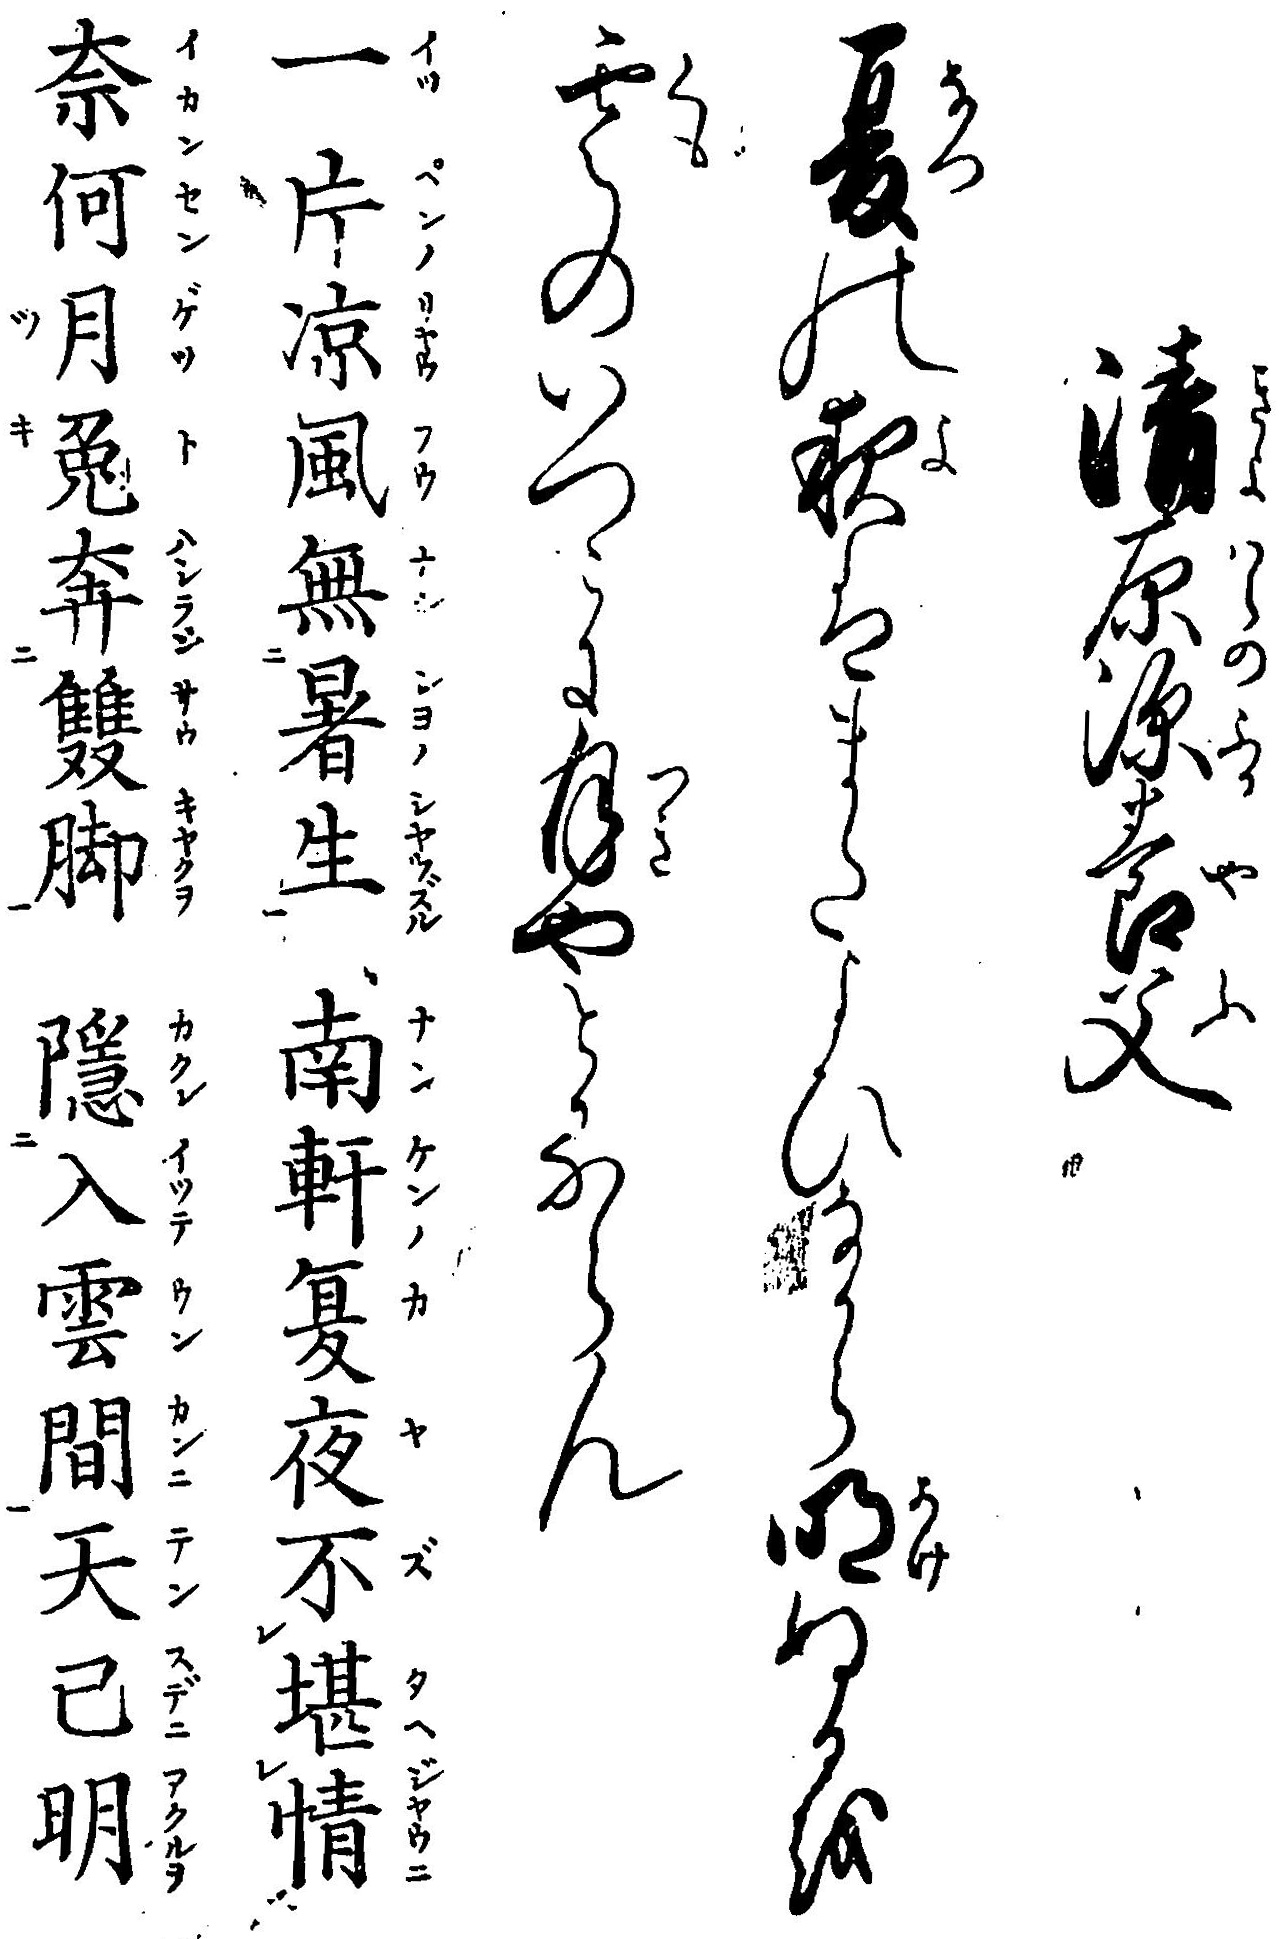 清原深養父
夏の夜はまたよひなから明ぬるを
雲のいつこに月やとるらん
一片凉風無暑生　南軒夏夜不堪情
奈何月兔奔雙脚　隱入雲間天已明